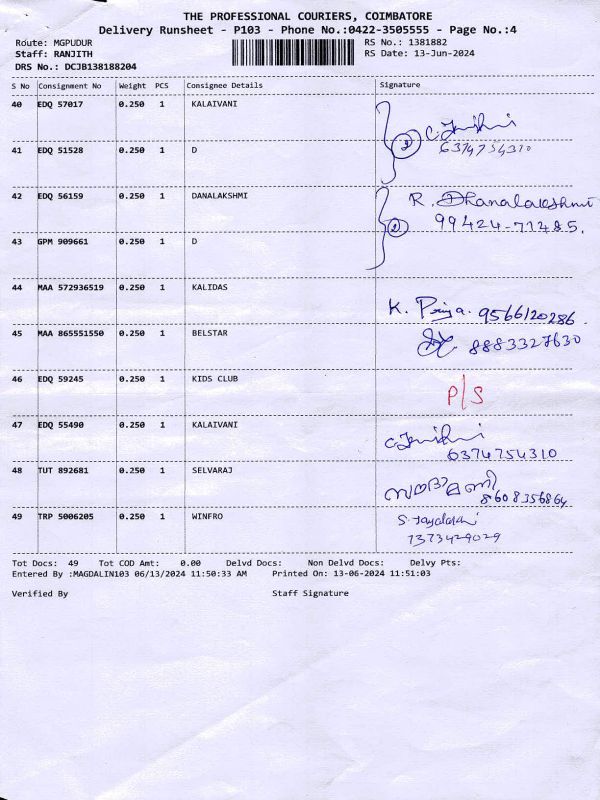 THE PROFESSIONAL COURIERS, COIMBATORE
Delivery Runsheet - P103 - Phone No.:0422-3505555 - Page No.:4
Route: MGPUDUR RS No.: 1381882
Staff: RANJITH RS Date: 13-Jun-2024
DRS No.: DCJB138188204
S No Consignment No Weight PCS Consignee Details Signature
40 EDQ 57017 0.250 1 KALAIVANI
2 6374754310
41 EDQ 51528 0.250 1 D
42 EDQ 56159 0.250 1 DANALAKSHMI R. Dhanalakshmi
2 99424-71485.
43 GPM 909661 0.250 1 D
44 MAA 572936519 0.250 1 KALIDAS
K. Priya. 9566120286
45 MAA 865551550 0.250 1 BELSTAR 8883327630
46 EDQ 59245 0.250 1 KIDS CLUB P/S
47 EDQ 55490 0.250 1 KALAIVANI
6374754310
48 TUT 892681 0.250 1 SELVARAJ
8608356864
49 TRP 5006205 0.250 1 WINFRO
7373429029
Tot Docs: 49 Tot COD Amt: 0.00 Delvd Docs: Non Delvd Docs: Delvy Pts:
Entered By :MAGDALIN103 06/13/2024 11:50:33 AM Printed On: 13-06-2024 11:51:03
Verified By Staff Signature